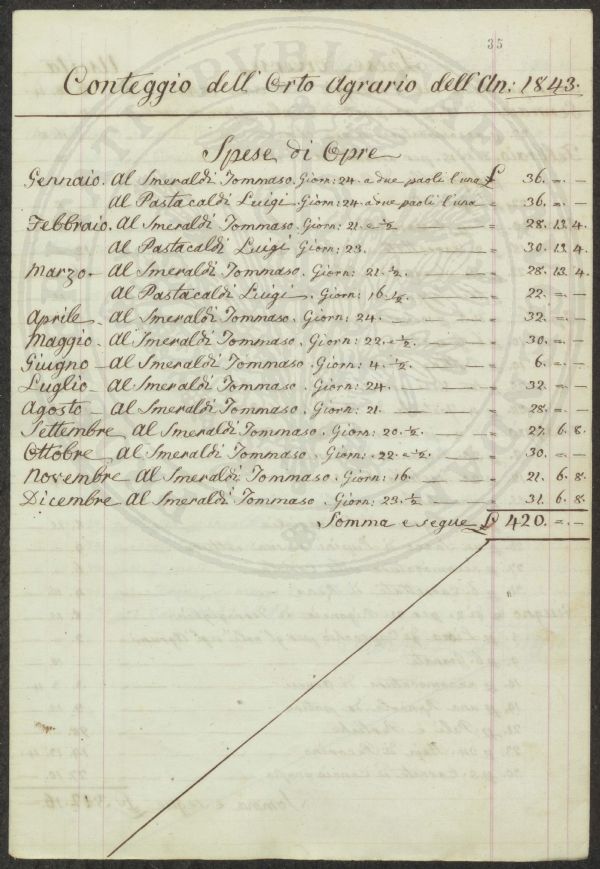 35
Conteggio dell' Orto Agrario dell' An: 1843.
Spese di Opre
Gennaio. Al Smeraldi Tommaso. Giorn: 24. a due paoli l'una £ 36. = . —
Al Pastacaldi Luigi. Giorn: 24. a due paoli l'una — = 36. = . —
Febbraio. Al Smeraldi Tommaso. Giorn: 21. e ½ — = 28. 13. 4.
Al Pastacaldi Luigi. Giorn: 23. — = 30. 13. 4.
Marzo — Al Smeraldi Tommaso. Giorn: 21. ½. — = 28. 13. 4
Al Pastacaldi Luigi. Giorn: 16. ½. — = 22. = . —
Aprile — Al Smeraldi Tommaso. Giorn: 24. — = 32. = . —
Maggio — Al Smeraldi Tommaso. Giorn: 22. e ½. — = 30. = . —
Giugno — Al Smeraldi Tommaso. Giorn: 4. ½. — = 6. = . —
Luglio — Al Smeraldi Tommaso. Giorn: 24. — = 32. = . —
Agosto — Al Smeraldi Tommaso. Giorn: 21. — = 28. = . —
Settembre Al Smeraldi Tommaso. Giorn: 20. ½. — = 27. 6. 8.
Ottobre — Al Smeraldi Tommaso. Giorn: 22. e ½. — = 30. = . —
Novembre Al Smeraldi Tommaso. Giorn: 16. — = 21. 6. 8.
Dicembre Al Smeraldi Tommaso. Giorn: 23. ½ — = 31. 6. 8.
Somma e segue £ 420. = . —